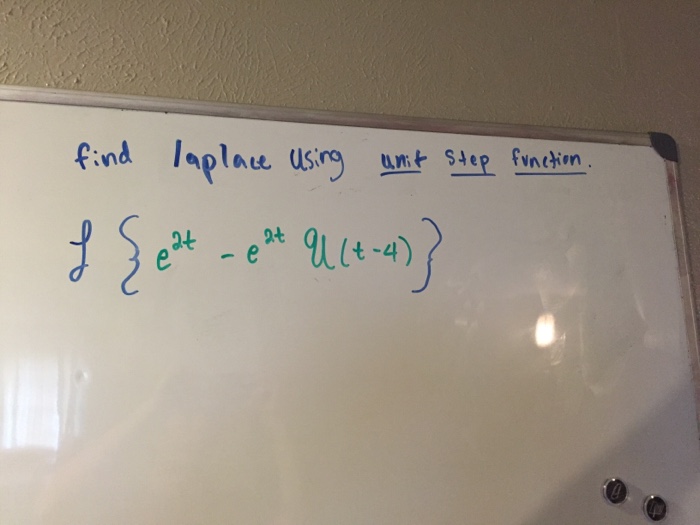 find laplace using unit step function.
ℒ { e^{2t} - e^{2t} 𝒰(t-4) }